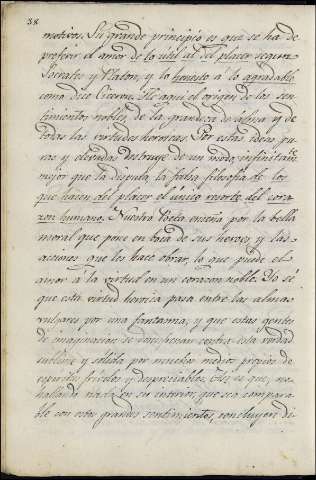 38
motivos. Su grande principio es que se ha de
preferir el amor de lo util al del placer segun
Socrates y Platon, y lo honesto á lo agradable
como dice Ciceron. He aqui el origen de los sen-
timientos nobles, de la grandeza de alma y de
todas las virtudes heroicas. Por estas ideas, pu-
ras y elevadas destruye de un modo infinitam.te
mejor que la disputa, la falsa filosofia de los
que hacen del placer el unico resorte del cora-
zon humano. Nuestro Poeta enseña por la bella
moral que pone en boca de sus heroes y las
acciones que les hace obrar, lo que puede el
amor á la virtud en un corazon noble. Yo sé
que esta virtud heroica pasa entre las almas
vulgares por una fantasma, y que estas gentes
de imaginacion se desenfrenan contra esta verdad
sublime y sólida por muchos medios propios de
espiritus frívolos y despreciables. Asi es que, no
hallando nada en su interior que sea compara-
ble con estos grandes sentimientos, concluyen di-